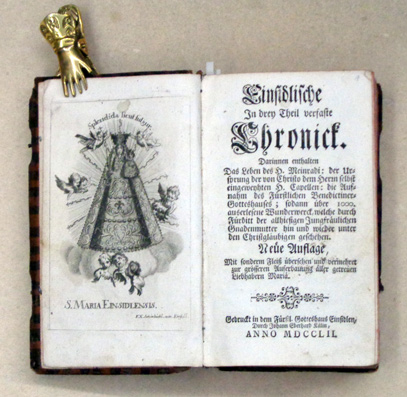 Splendida sicut fulgur
S. MARIA EINSIDLENSIS.
Einsidlische
In drey Theil verfaßte
Chronick.
Darinnen enthalten
Das Leben des H. Meinradi: der Ur-
sprung der von Christo dem Herrn selbst
eingeweyhten H. Capellen: die Auf-
nahm des Fürstlichen Benedictiner-
Gotteshauses; sodann über 1000.
auserlesene Wunderwerck, welche durch
Fürbitt der allhiesigen Jungfräulichen
Gnadenmutter hin und wieder unter
den Christgläubigen geschehen.
Neue Auflage,
Mit sonderm Fleiß übersehen und vermehret
zur grösseren Auferbauung aller getreuen
Liebhabern Mariä.
Gedruckt in dem Fürstl. Gotteshaus Einsidlen,
Durch Johann Eberhard Kälin,
ANNO MDCCLII.